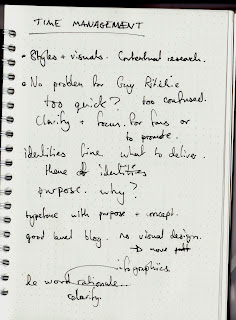 TIME MANAGEMENT
• Styles + visuals. Contextual research.
• No problem for Guy Ritchie
too quick? too confused.
Clarity + focus. for fans or
to promote.
identities fine what to deliver.
theme of identities
purpose. why?
typeface with purpose + concept.
good level blog. no visual designs.
→ more
infographics
rationale
clarity.